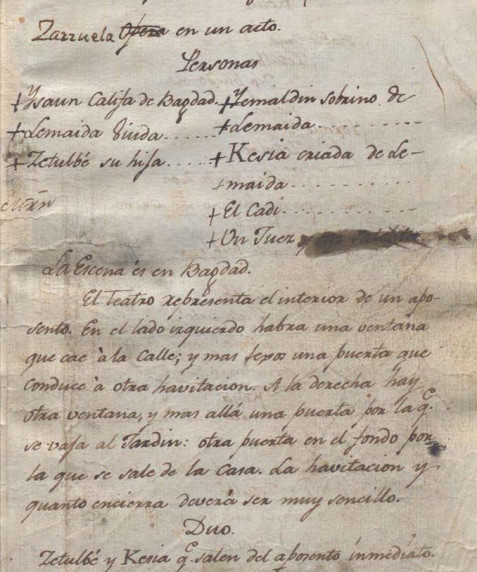 Zarzuela Opera en un acto.
Personas
+ Ysaun Califa de Bagdad. + Yemaldin sobrino de
+ Lemaida Viuda..... + Lemaida..........
+ Zetulbé su hija..... + Kesia criada de Le-
maida..........
+ El Cadi..........
+ Un Juez
La Escena és en Bagdad.
El Teatro representa el interior de un apo-
sento. En el lado izquierdo habra una ventana
que cae à la Calle; y mas lexos una puerta que
conduce à otra havitacion. A la derecha hay
otra ventana, y mas allá una puerta por la q.e
se vaja al Jardin: otra puerta en el fondo por
la que se sale de la Casa. La havitacion y
quanto encierra deverá ser muy sencillo.
Duo.
Zetulbé y Kesia q.e salen del aposento inmediato.